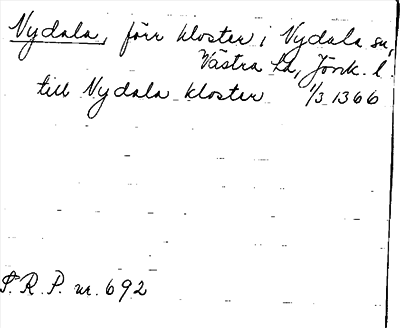 Nydala, förr kloster i Nydala sn,
Västra hd, Jönk. l.
till Nydala kloster 1/3 1366
S.R.P. nr. 692